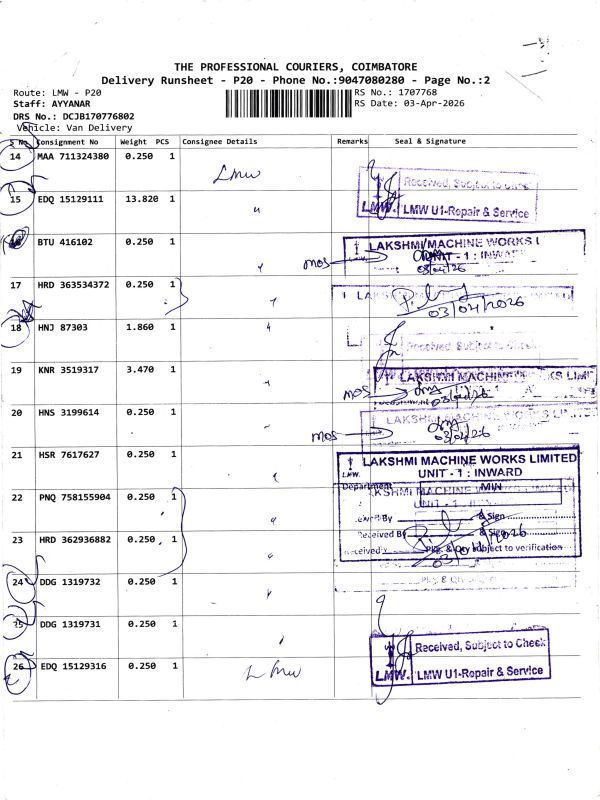 THE PROFESSIONAL COURIERS, COIMBATORE
Delivery Runsheet - P20 - Phone No.:9047080280 - Page No.:2
Route: LMW - P20
RS No.: 1707768
Staff: AYYANAR
RS Date: 03-Apr-2026
DRS No.: DCJB170776802
Vehicle: Van Delivery
S No Consignment No Weight PCS Consignee Details Remarks Seal & Signature
14 MAA 711324380 0.250 1 LMW
Received, Subject to Check
15 EDQ 15129111 13.820 1 "
LMW. LMW U1-Repair & Service
BTU 416102 0.250 1 "
LAKSHMI MACHINE WORKS L
MOS UNIT - 1 : INWARD
03/04/26
17 HRD 363534372 0.250 1 "
03/04/2026
18 HNJ 87303 1.860 1 "
Received, Subject to Check
19 KNR 3519317 3.470 1 "
LAKSHMI MACHINE WORKS LIMIT
MOS 03/04/26
20 HNS 3199614 0.250 1 "
LAKSHMI MACHINE WORKS LI
MOS 03/04/26
21 HSR 7617627 0.250 1 "
LAKSHMI MACHINE WORKS LIMITED
LMW. UNIT - 1 : INWARD
Department MIN
22 PNQ 758155904 0.250 1 "
& Sign
Received By & Sign
23 HRD 362936882 0.250 1 "
03/04/2026
Pkg. & Qty subject to verification
24 DDG 1319732 0.250 1 "
25 DDG 1319731 0.250 1 "
Received, Subject to Check
26 EDQ 15129316 0.250 1 LMW
LMW. LMW U1-Repair & Service